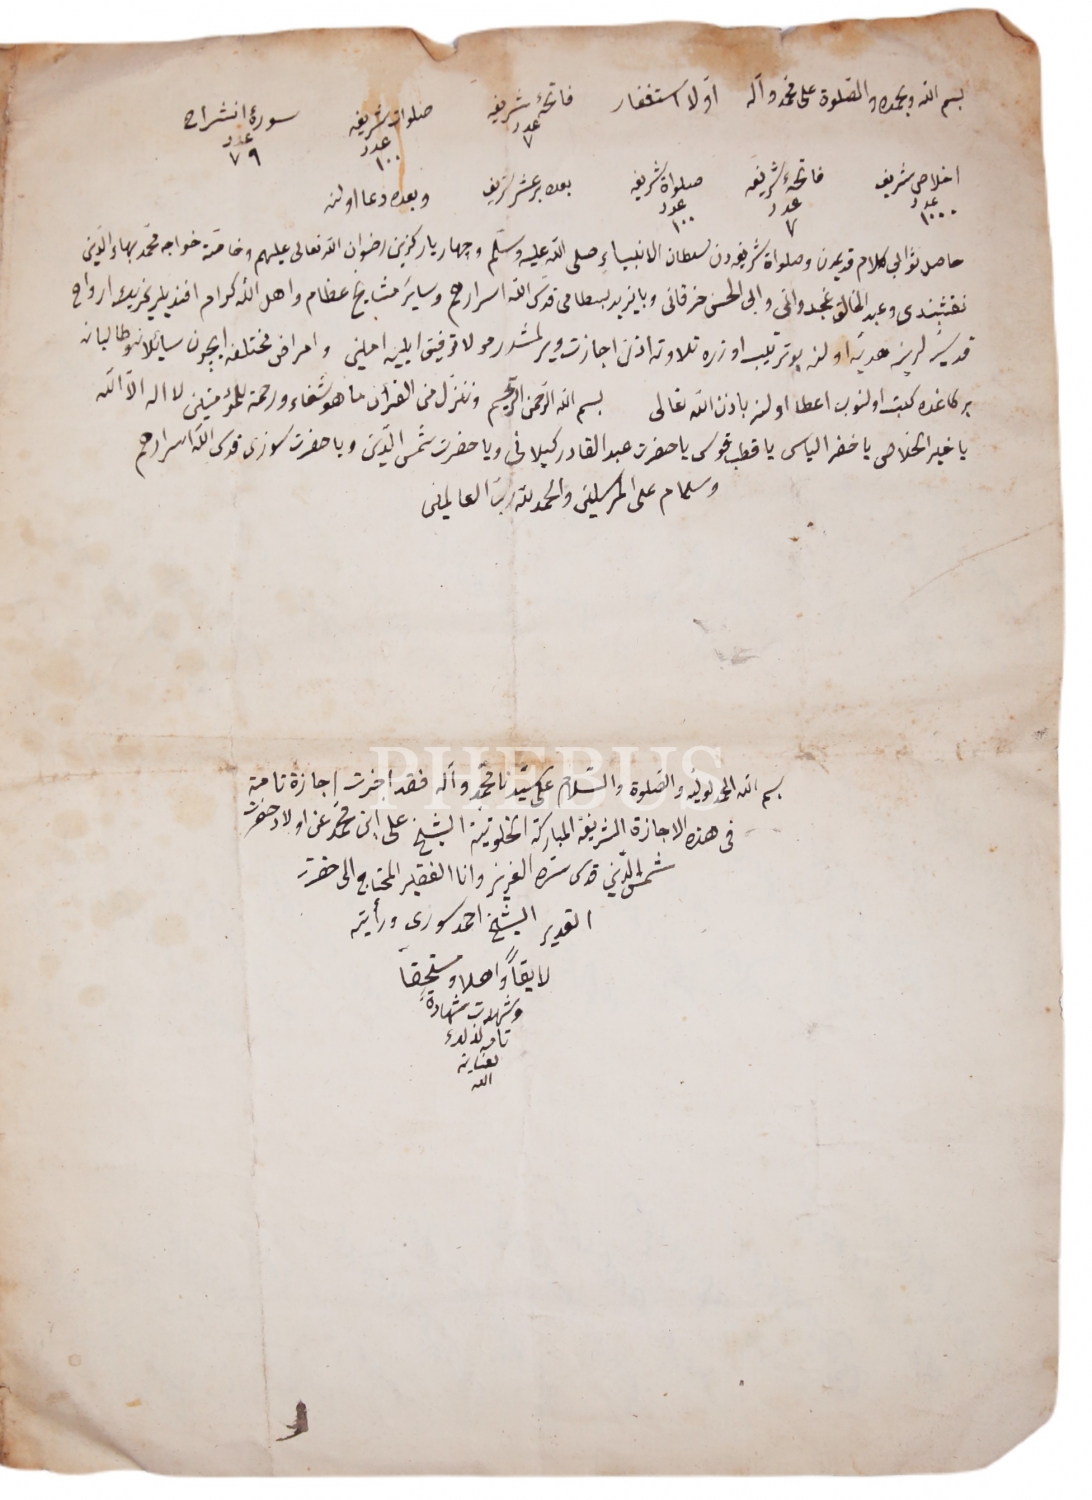 بسم الله وبحمده والصلوة على محمد وآله اولا استغفار فاتحهٔ شريفه عدد ٧ صلوات شريفه عدد ١٠٠ سورهٔ انشراح عدد ٧٩
اخلاص شريف عدد ١٠٠٠ فاتحهٔ شريفه عدد ٧ صلواة شريفه عدد ١٠٠ بعده بر عشر شريف وبعده دعا اولنه
حاصل ثوابى كلام قديمدن وصلواة شريفه دن سلطان الانبياء صلى الله عليه وسلم وچهار يار كزين رضوان الله تعالى عليهم وخاصة خواجه محمد بهاء الدين
نقشبندى وعبد الخالق غجدوانى وابى الحسن خرقانى وبايزيد بسطامى قدس الله اسرارهم وسائر مشايخ عظام واهل الله كرام افنديلريمزيك ارواح
قدسيه لرينه هديه اولنه بو ترتيب اوزره تلاوته اذن اجازت ويرلمشدر مولا توفيق ايليه امين وامراض مختلفه ايچون سائلانه وطالبانه
بر كاغده كتب اولنوب اعطا اولنه باذن الله تعالى بسم الله الرحمن الرحيم وننزل من القرآن ما هو شفاء ورحمة للمؤمنين لا اله الا الله
يا خير الخلاص يا خضر الياس يا قطب يا حضرت عبد القادر كيلانى ويا حضرت شمس الدين ويا حضرت سوزى قدس الله اسرارهم
وسلام على المرسلين والحمد لله رب العالمين
PHEBUS
بسم الله الحمد لوليه والصلوة والسلام على سيدنا محمد وآله فقد اجزت اجازة تامة
فى هذه الاجازة الشريفة المباركة الخلوتية الشيخ على ابن محمد عن اولاد حضرت
شمس الدين قدس سره العزيز وانا الفقير المحتاج الى حضرت
القدير الشيخ احمد سوزى ورأيته
لايقاً واهلا ومستحقاً
وشهدت شهادة
تامه لذلك
بعناية
الله